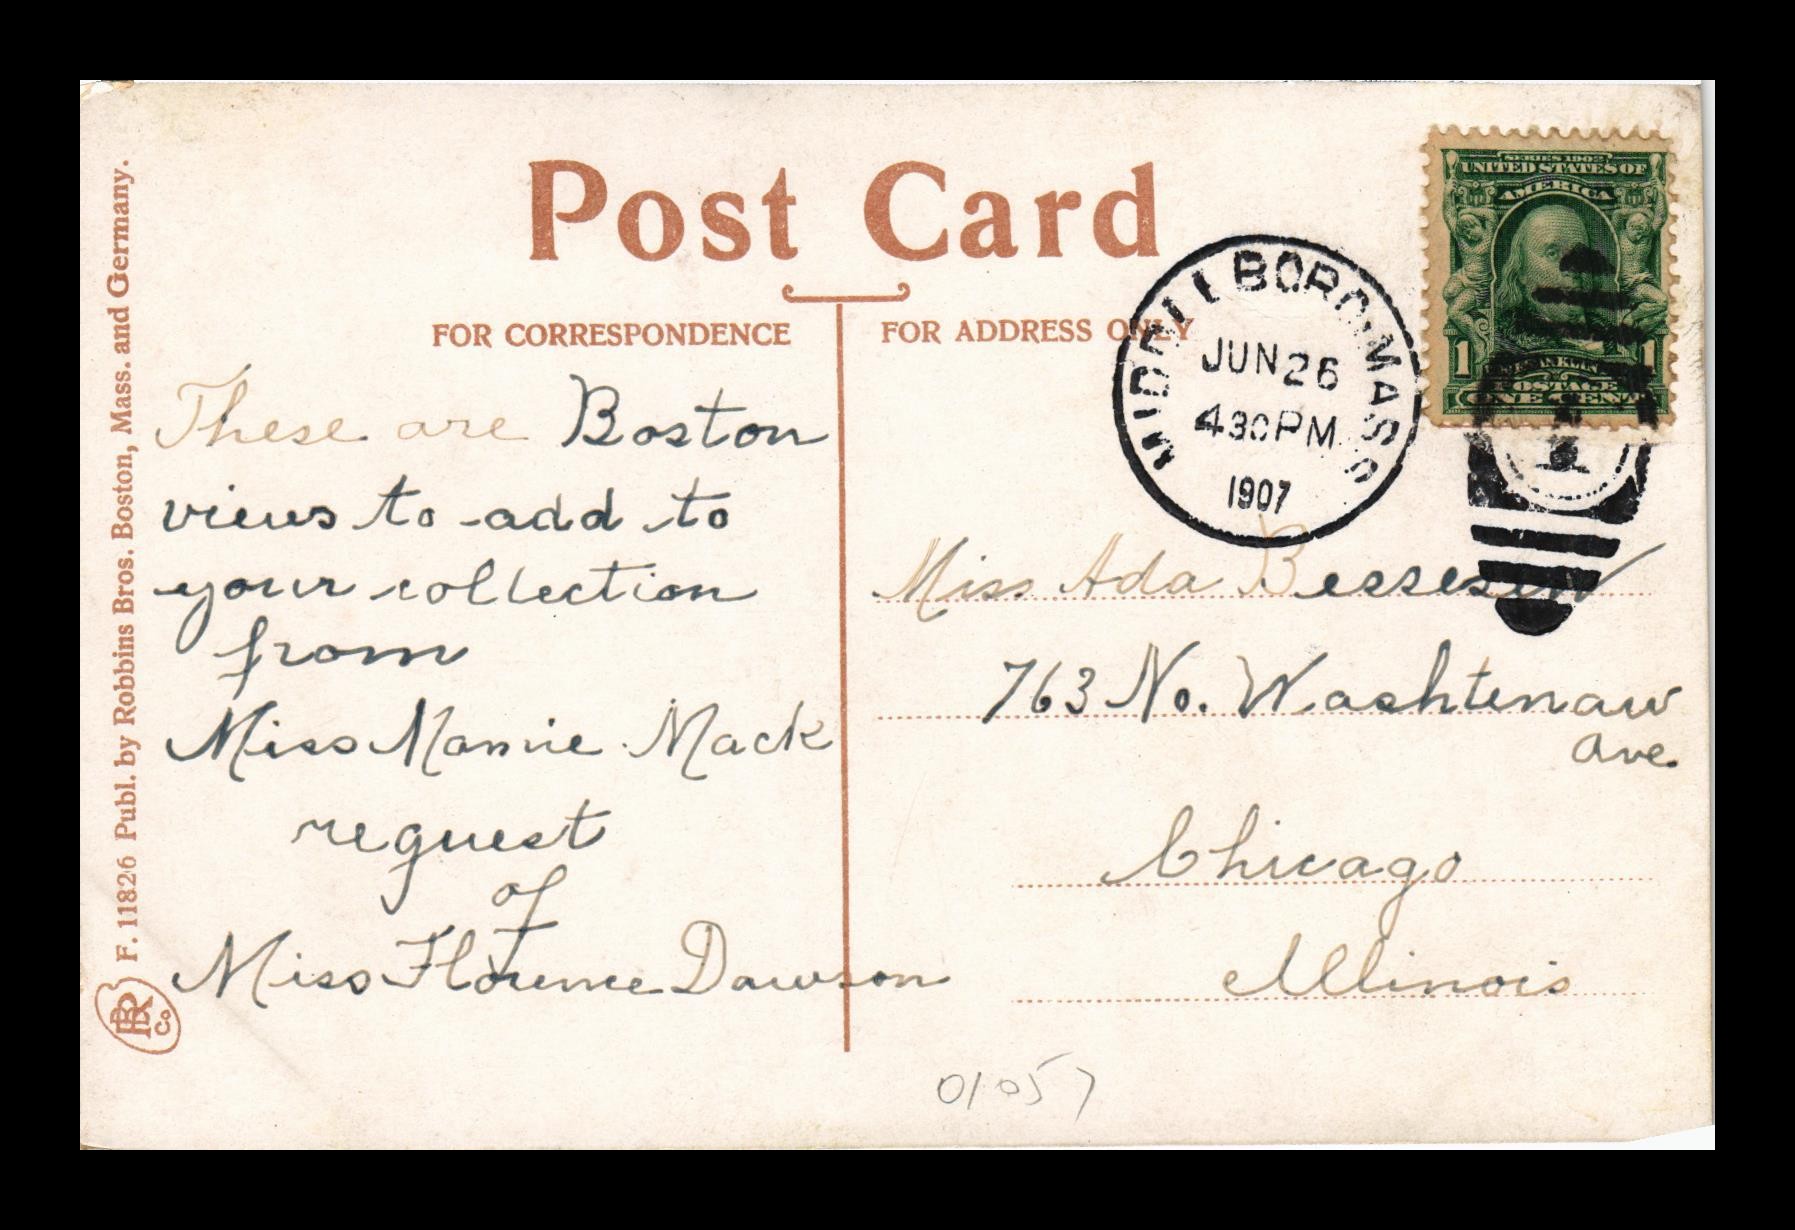 Post Card
FOR CORRESPONDENCE
FOR ADDRESS ONLY
SERIES 1902
UNITED STATES OF
AMERICA
1 FRANKLIN 1
POSTAGE
ONE CENT
MIDDLEBORO, MASS.
JUN 26
430 PM
1907
1
These are Boston
views to add to
your collection
from
Miss Mamie Mack
request
of
Miss Florence Dawson
Miss Ada Bessesen
763 No. Washtenaw
Ave.
Chicago
Illinois
01057
F. 11826 Publ. by Robbins Bros. Boston, Mass. and Germany.
RB Co